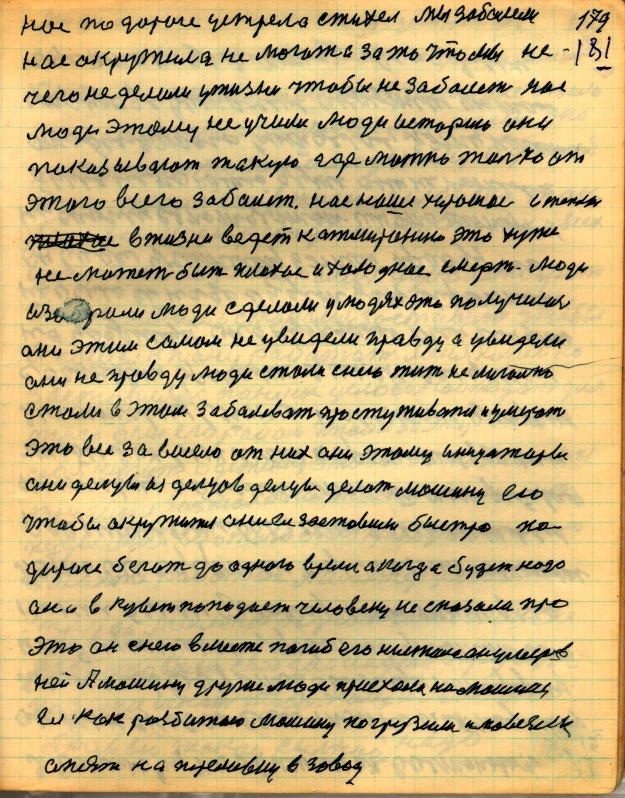 нас по дороге устрела стихел мы забалели 179
нас окружила не могота за то что мы не - 131
чего не делали у жизни чтобы не забалет нас
люди этому не учили люди историю они
показывают такую гдеможно только от
этого всего забалет. нас наше хорошае и тепла
в жизни ведет к отмиранию это хуже
не может быт плахое и холодное смерт. люди
люди сделали у людях это получилас
они этим самом не увидели правду а увидели
они не правду люди стали снею жит не лигално
стали в этом забалеват простуживатся и умерат
это все за висело от них они этому
они делцы из делцов делцы делат машину его
чтобы окружится они ея заставили быстро по
дороге бегат до одного время а когда будет надо
она в кувет поподает человеку не сказала про
это он снею вместе погиб его нистало он умер в
ней А машину другие люди приехала на машине
ея как разбитаю машину погрузили и повезли
опят на плавку в завод